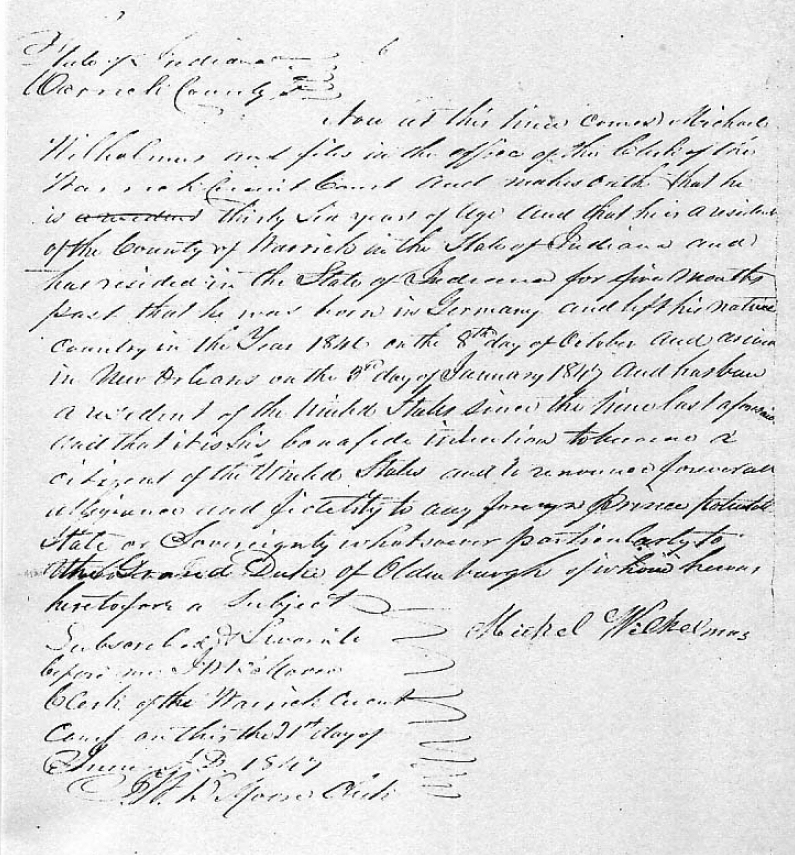 State of Indiana
Warrick County Ss
Now at this time comes Michael
Wilhelmus and files in the office of the Clerk of the
Warrick Circuit Court and makes oath that he
is a resident thirty six years of age and that he is a resident
of the County of Warrick in the State of Indiana and
has resided in the State of Indiana for five months
past that he was born in Germany and left his native
country in the Year 1846 on the 8th day of October and arrived
in New Orleans on the 3rd day of January 1847 and has been
a resident of the United States since the time last aforesaid
and that it is his bonafide intention to become a
citizen of the United States and to renounce forever all
allegiance and fidelity to any foreign Prince potentate
State or Sovereignty whatsoever particularly to
the Grand Duke of Oldenburgh of whom he was
heretofore a Subject
Michel Wilhelmus
Subscribed & Sworn to
before me
Clerk of the Warrick Circuit
Court on this the 21st day of
June A.D. 1847
Moore Clerk